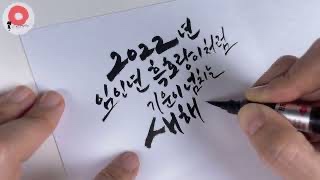 2022년
임인년 흑호랑이처럼
기운이 넘치는
새해